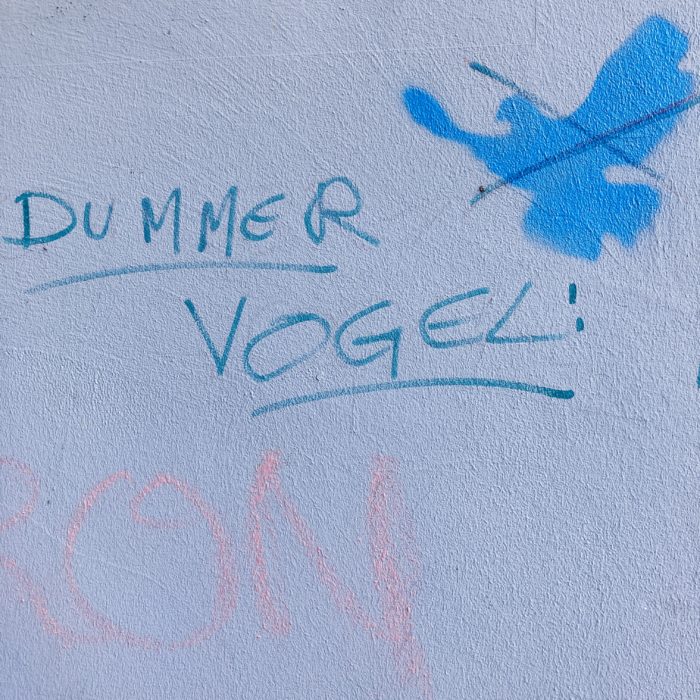 DUMMER
VOGEL!
RON